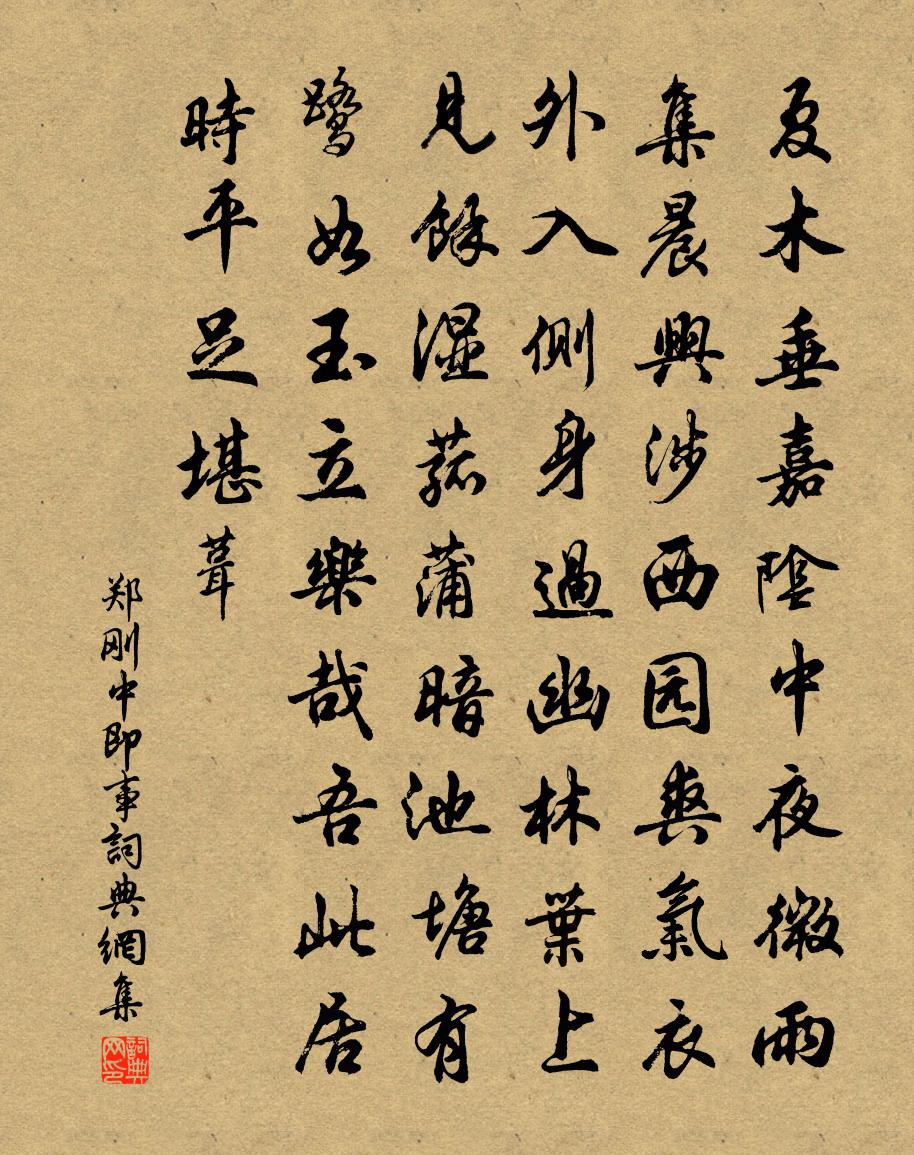 夏木垂嘉陰中夜微雨
集晨興涉西园爽氣衣
外入側身過幽林葉上
見餘濕菰蒲暗池塘有
鷺如玉立樂哉吾此居
時平足堪葺
郑刚中即事詞典網集
詞典网印